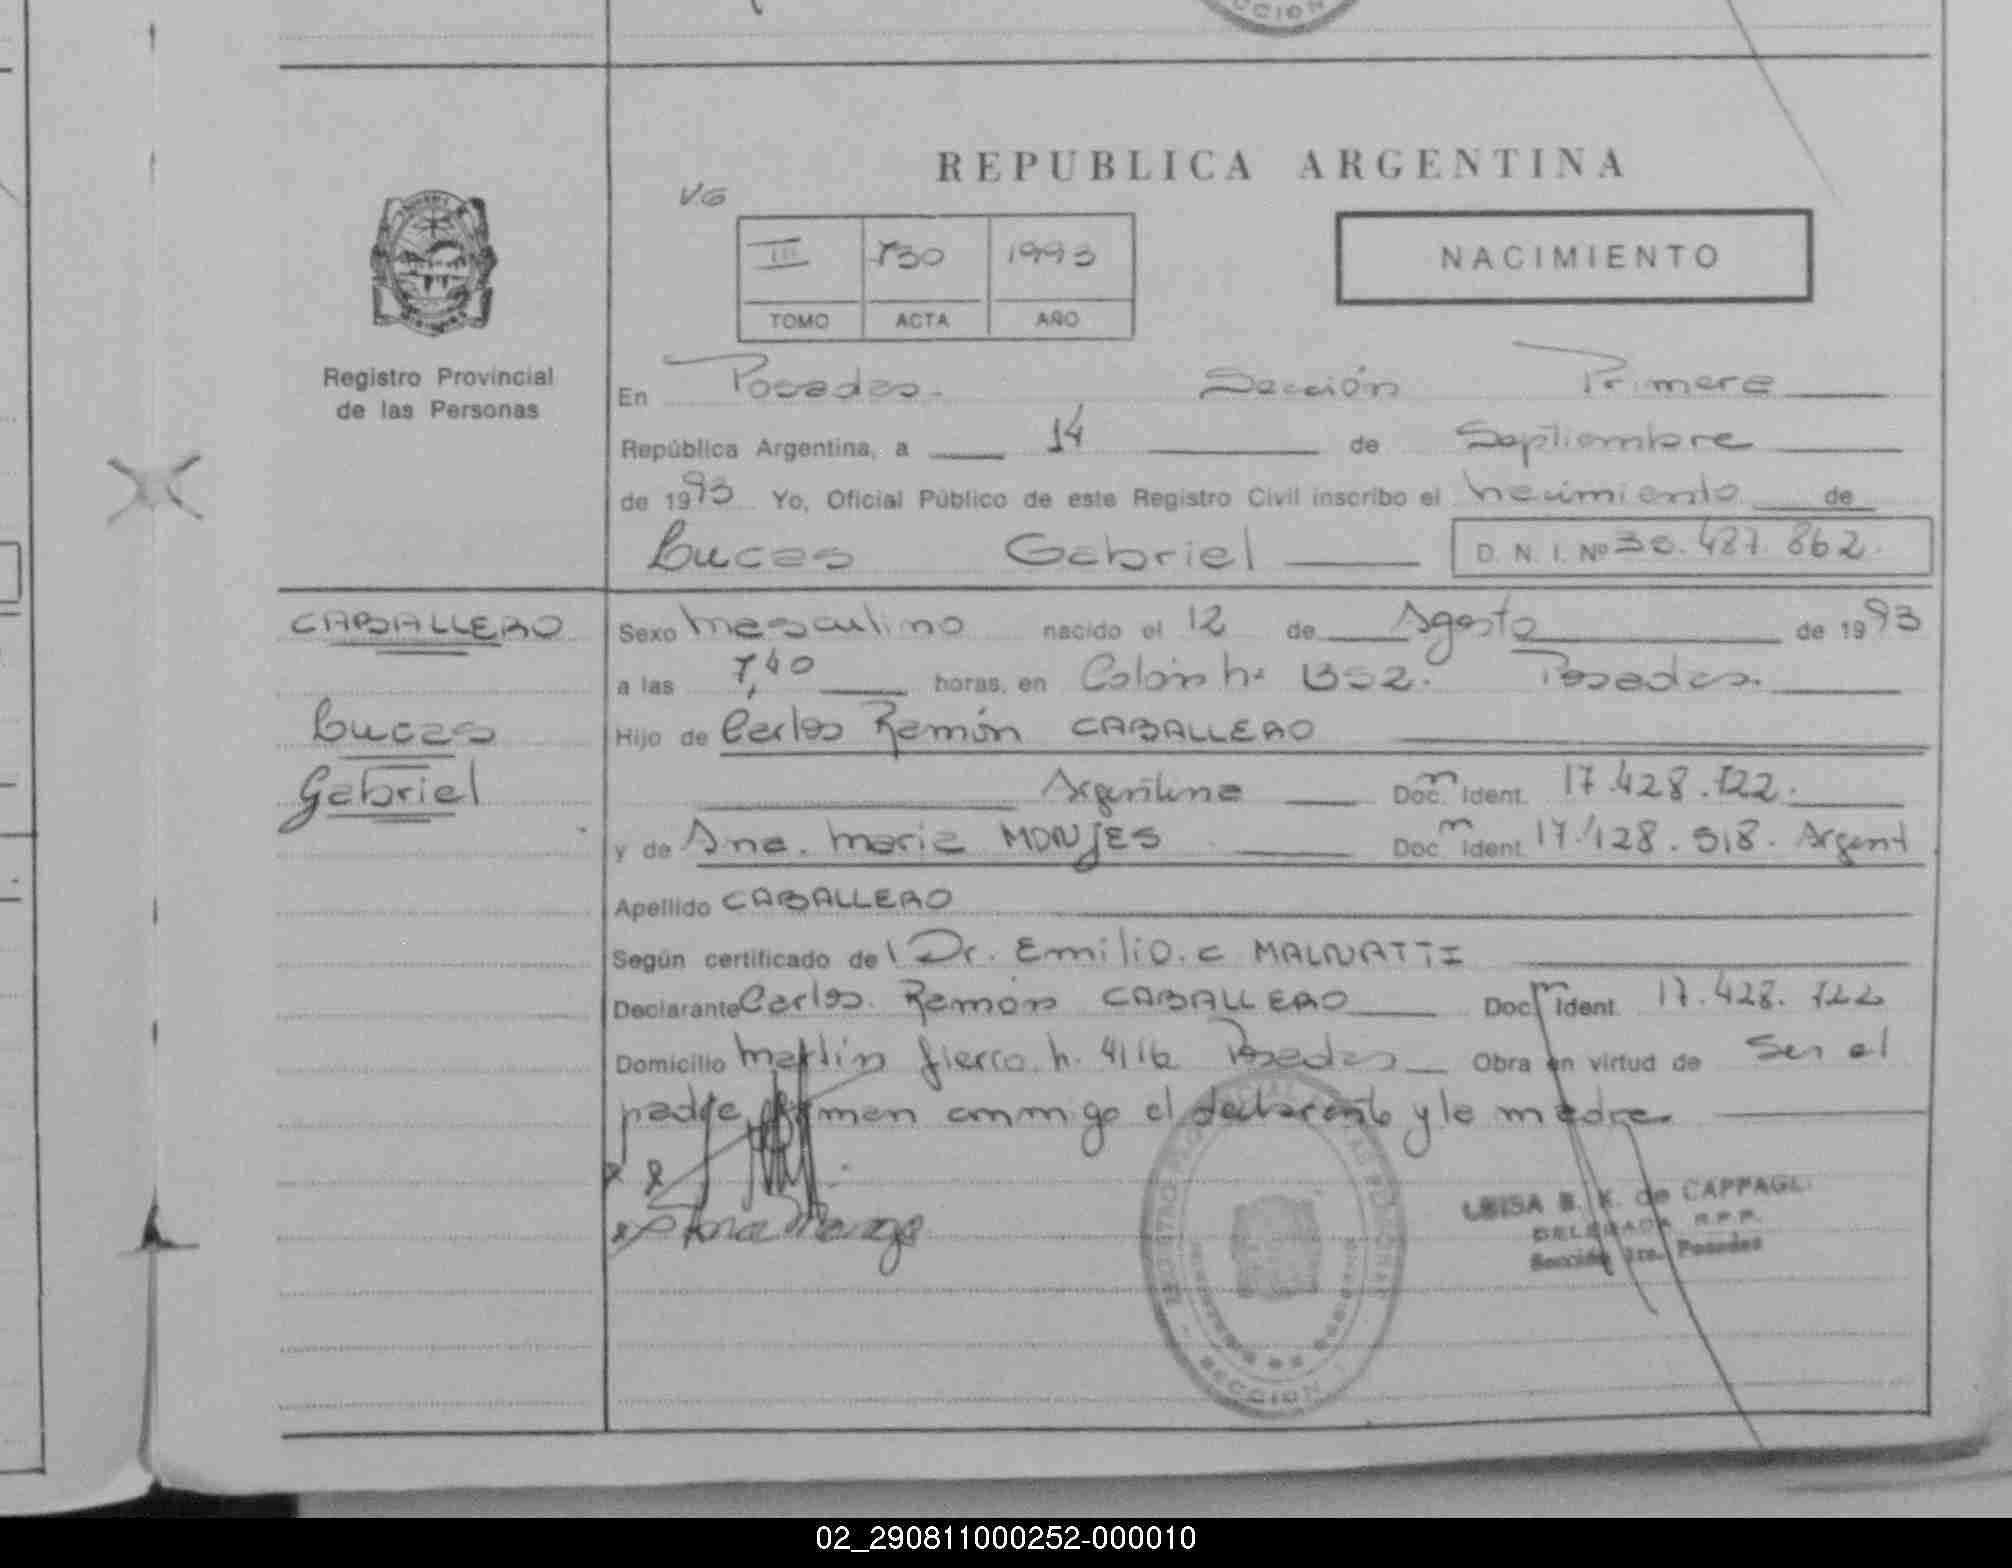 CCION
REPUBLICA ARGENTINA
V.G
III 730 1993
TOMO ACTA AÑO
NACIMIENTO
Registro Provincial
de las Personas
En Posadas. Sección Primera
República Argentina, a 14 de Septiembre
de 1993 Yo, Oficial Público de este Registro Civil inscribo el nacimiento de
Lucas Gabriel D. N. I. Nº 30.487.862.
CABALLERO
Lucas
Gabriel
Sexo masculino nacido el 12 de Agosto de 1993
a las 7,40 horas, en Colón Nº 1352. Posadas.
Hijo de Carlos Ramón CABALLERO
Argentina Doc. Ident. 17.428.722.
y de Ana. María MONJES Doc. Ident. 17.128.518. Argent
Apellido CABALLERO
Según certificado del Dr. Emilio. C MALNATTI
Declarante Carlos. Ramón CABALLERO Doc. Ident. 17.428.722
Domicilio Martín fierro. N. 4116 Posadas Obra en virtud de Ser el
padre firman conmigo el declarante y la madre.
LUISA B. K. de CAPPAGLI
DELEGADA R.P.P.
Sección 1ra. Posadas
SECCION 1
02_290811000252-000010